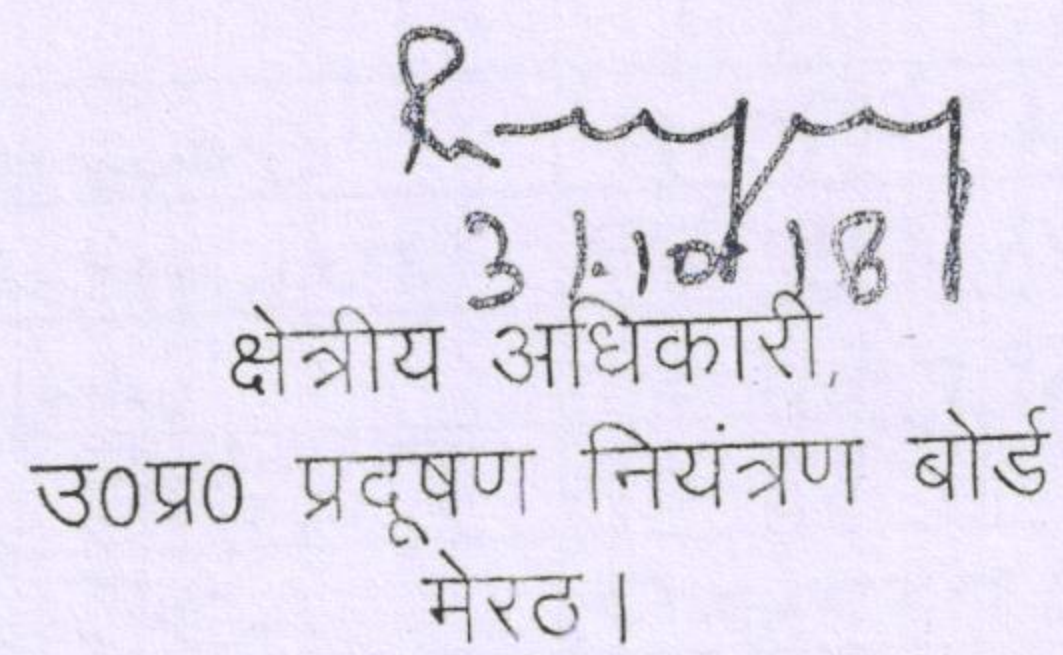 31.10.18
क्षेत्रीय अधिकारी,
उ0प्र0 प्रदूषण नियंत्रण बोर्ड
मेरठ।